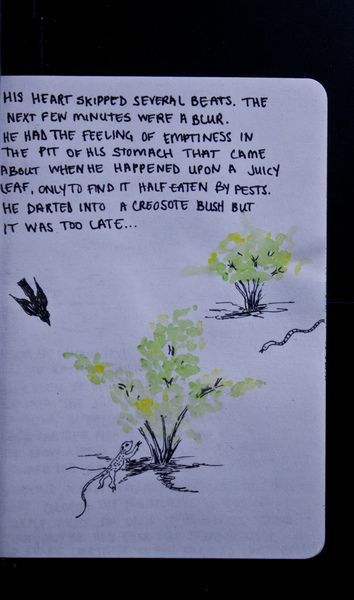 HIS HEART SKIPPED SEVERAL BEATS. THE
NEXT FEW MINUTES WERE A BLUR.
HE HAD THE FEELING OF EMPTINESS IN
THE PIT OF HIS STOMACH THAT CAME
ABOUT WHEN HE HAPPENED UPON A JUICY
LEAF, ONLY TO FIND IT HALF EATEN BY PESTS.
HE DARTED INTO A CREOSOTE BUSH BUT
IT WAS TOO LATE...